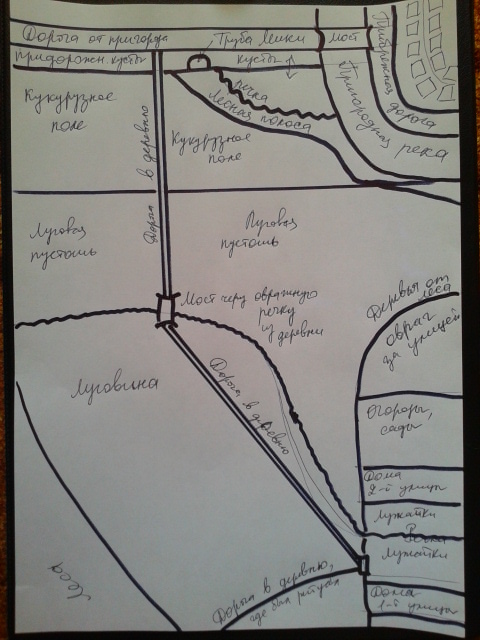 Дорога от пригорода
Труба речки
мост
Прибрежная дорога
Придорожн. кусты
кусты
речка
Лесная полоса
Пригородная река
Кукурузное
поле
Кукурузное
поле
Дорога в деревню
Луговая
пустошь
Луговая
пустошь
Мост через овражную
речку
из деревни
Деревья от
леса
овраг
за улицей
Луговина
Дорога в деревню
Огороды,
сады
Дома
2-й улицы
Лужайки
Речка
Лужайки
Дорога в деревню,
где был
Дома
1-й улицы
Леса